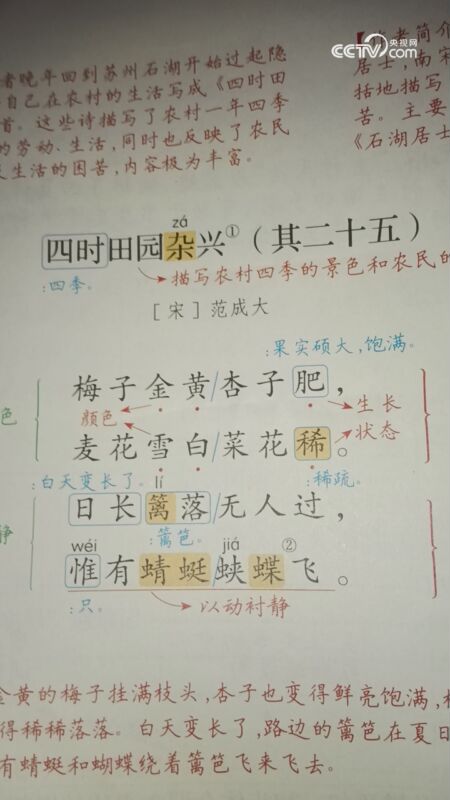 CCTV.com 央视网
者晚年回到苏州石湖开始过起隐
自己在农村的生活写成《四时田
首。这些诗描写了农村一年四季
的劳动、生活,同时也反映了农民
生活的困苦,内容极为丰富。
作者简介
居士,南宋
括地描写
苦。主要
《石湖居士
zá
四时田园杂兴①(其二十五)
:四季。
描写农村四季的景色和农民的
[宋]范成大
:果实硕大,饱满。
梅子金黄/杏子肥,
色
颜色
生长
状态
麦花雪白/菜花稀。
:白天变长了。
lí
:稀疏。
日长篱落/无人过,
静
:篱笆。
wéi
jiá
②
惟有蜻蜓/蛱蝶飞。
:只。
以动衬静
金黄的梅子挂满枝头,杏子也变得鲜亮饱满,
得稀稀落落。白天变长了,路边的篱笆在夏日
有蜻蜓和蝴蝶绕着篱笆飞来飞去。